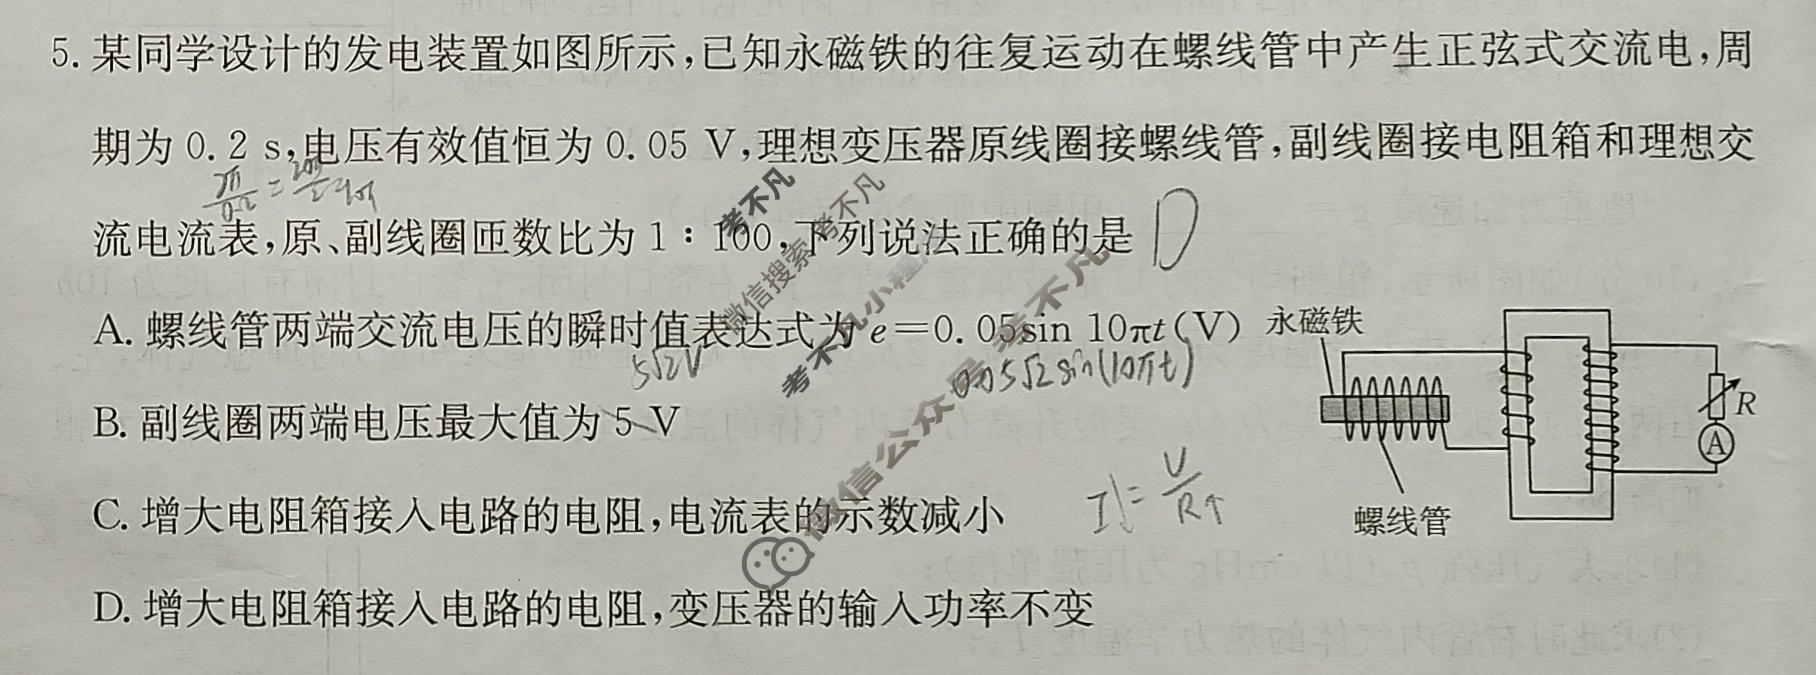 5. 某同学设计的发电装置如图所示,已知永磁铁的往复运动在螺线管中产生正弦式交流电,周
期为 0.2 s,电压有效值恒为 0.05 V,理想变压器原线圈接螺线管,副线圈接电阻箱和理想交
流电流表,原、副线圈匝数比为 1∶100,下列说法正确的是 D
A. 螺线管两端交流电压的瞬时值表达式为 e=0.05sin 10πt(V)
5√2V
0.05√2sin(10πt)
B. 副线圈两端电压最大值为 5 V
C. 增大电阻箱接入电路的电阻,电流表的示数减小
I↓=U/R↑
D. 增大电阻箱接入电路的电阻,变压器的输入功率不变
永磁铁
R
A
螺线管
考不凡
微信搜索 考不凡
考不凡小程序
微信公众号 考不凡